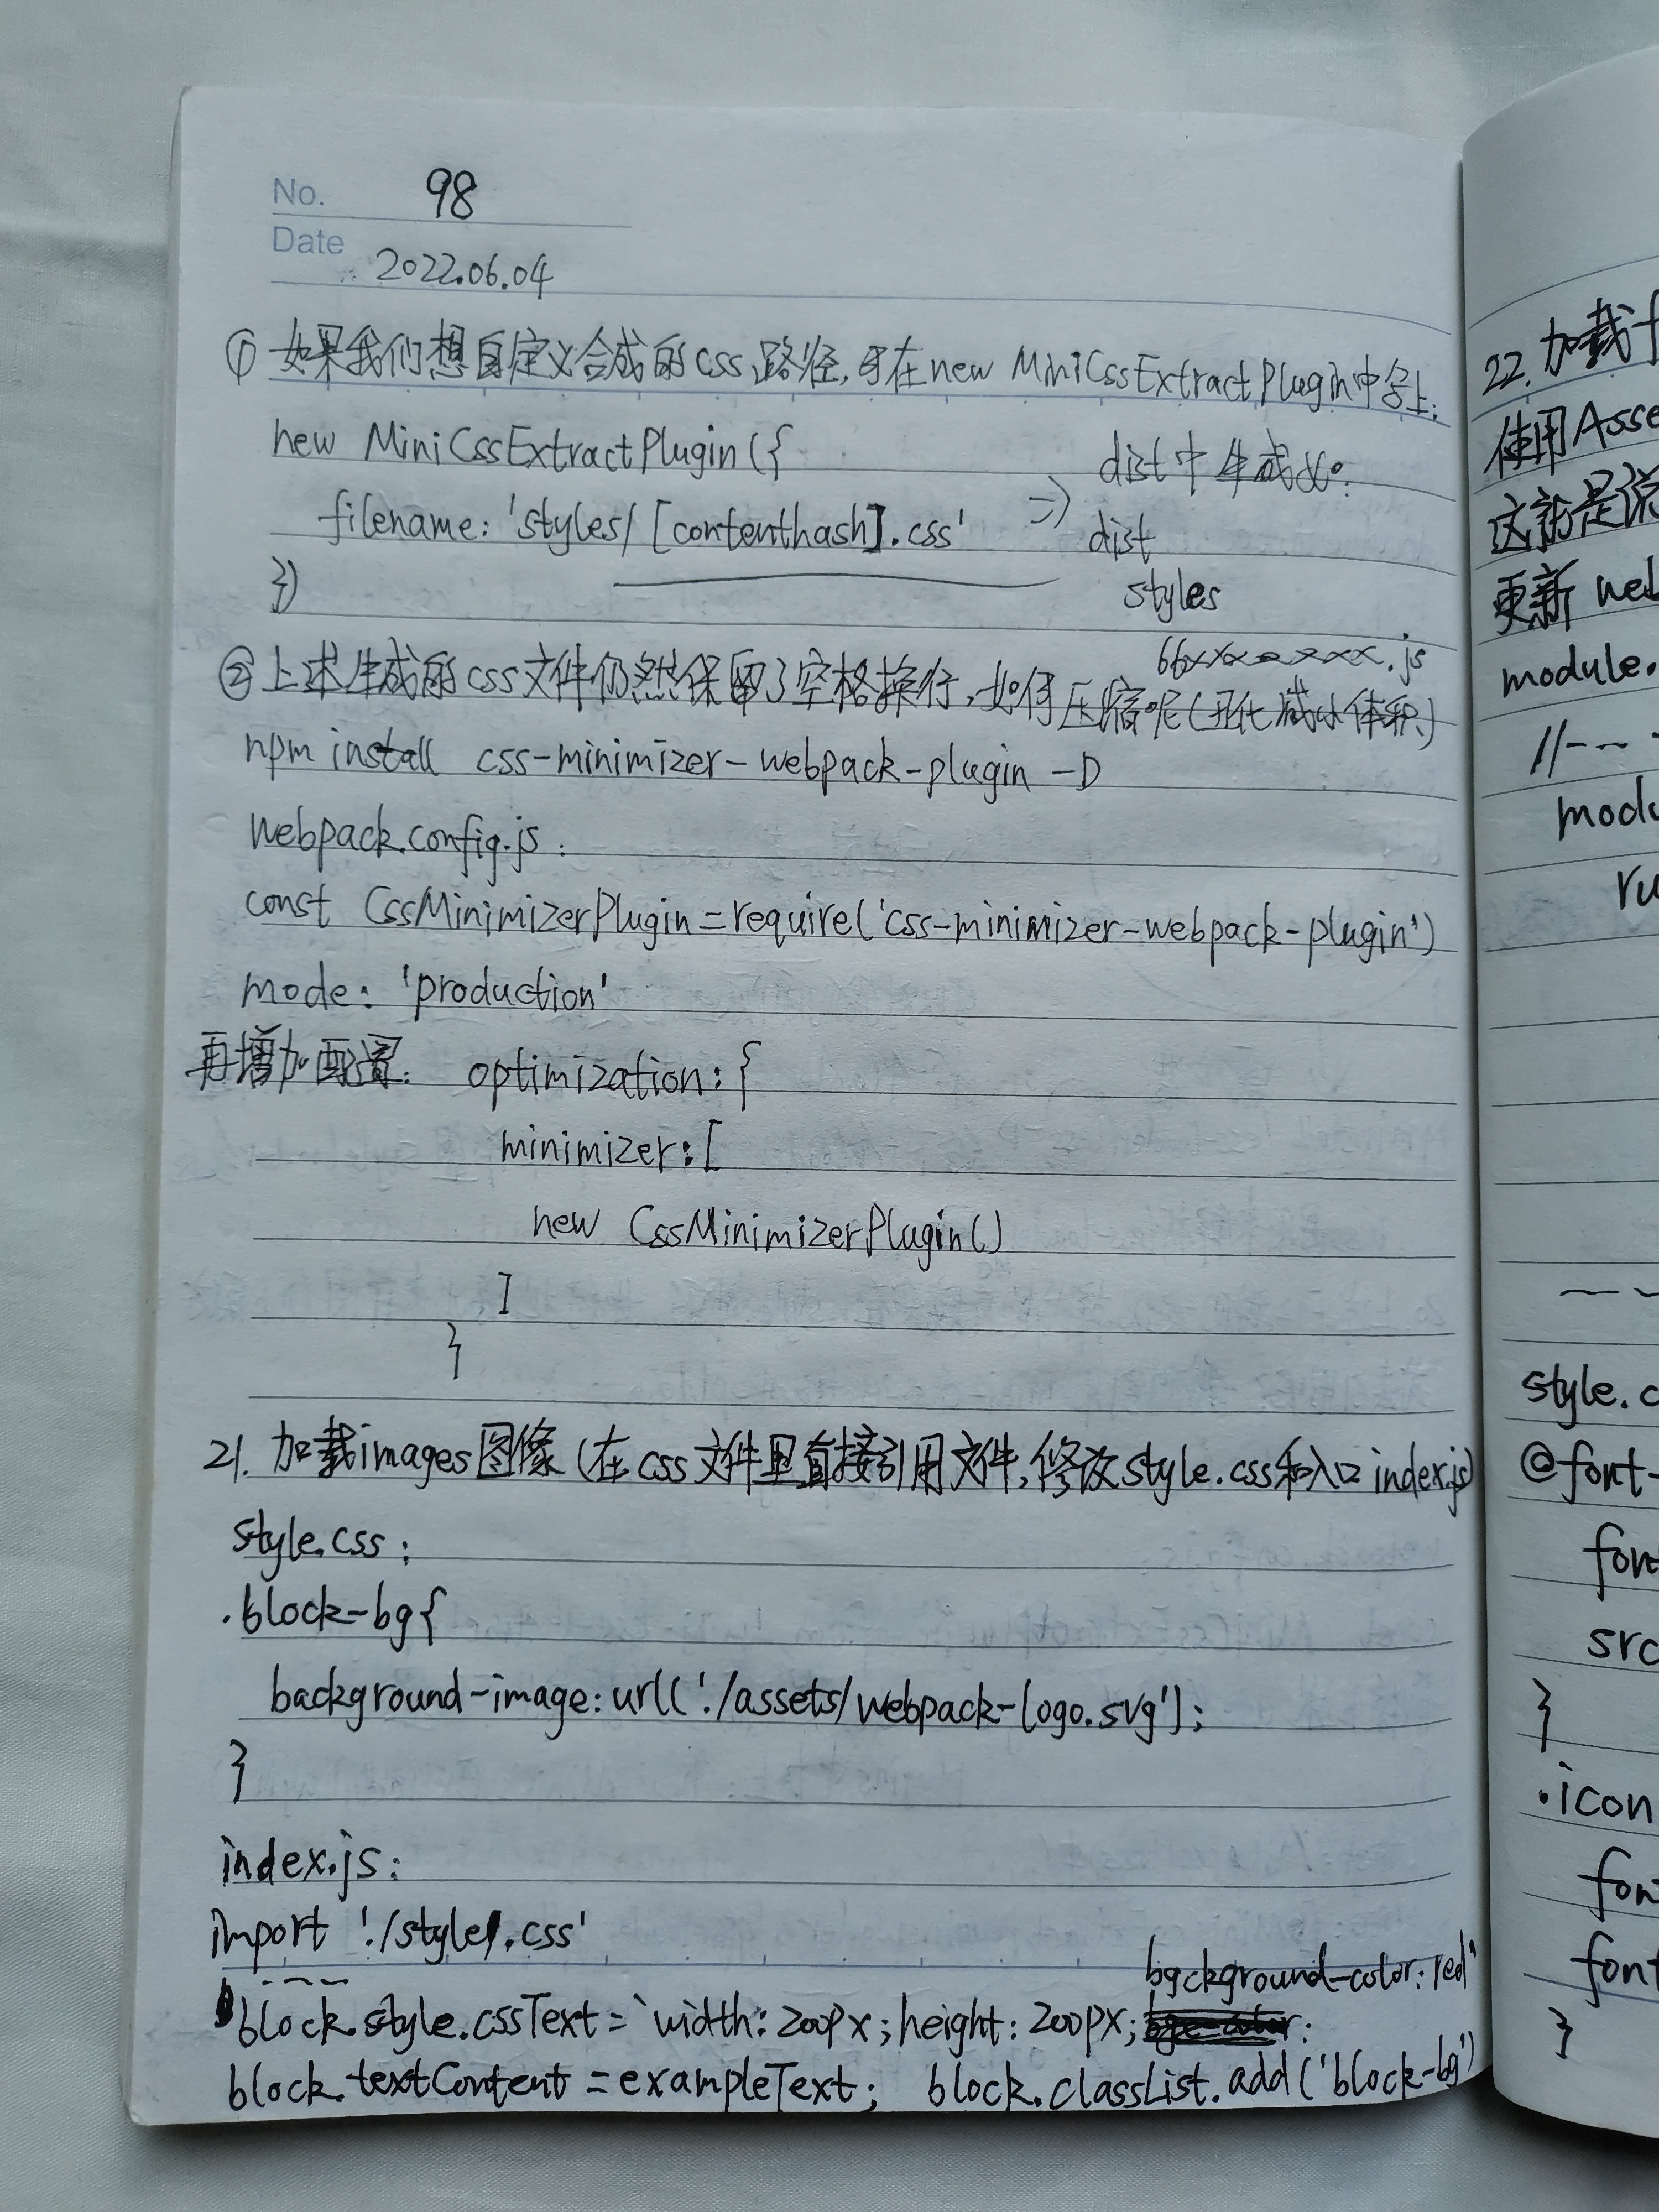 No. 98
Date 2022.06.04
① 如果我们想自定义合成的css路径,可在new MiniCssExtractPlugin中写上:
new MiniCssExtractPlugin({
dist中生成如:
filename: 'styles/[contenthash].css'
=>
dist
})
styles
66xxxxxxxx.js
②上述生成的css文件仍然保留了空格换行,如何压缩呢(丑化减少体积)
npm install css-minimizer-webpack-plugin -D
webpack.config.js:
const CssMinimizerPlugin=require('css-minimizer-webpack-plugin')
mode: 'production'
再增加配置: optimization:{
minimizer:[
new CssMinimizerPlugin()
]
}
21. 加载images图像(在css文件里直接引用文件,修改style.css和入口index.js)
style.css:
.block-bg{
background-image:url('./assets/webpack-logo.svg');
}
index.js:
import './style.css'
background-color:red'
block.style.cssText=`width:200px;height:200px;
block.textContent=exampleText; block.classList.add('block-bg')
22.加载
使用Asse
这就是说
更新 web
module.
//---
modu
ru
style.c
@font-
fon
src
}
.icon
fon
font
}